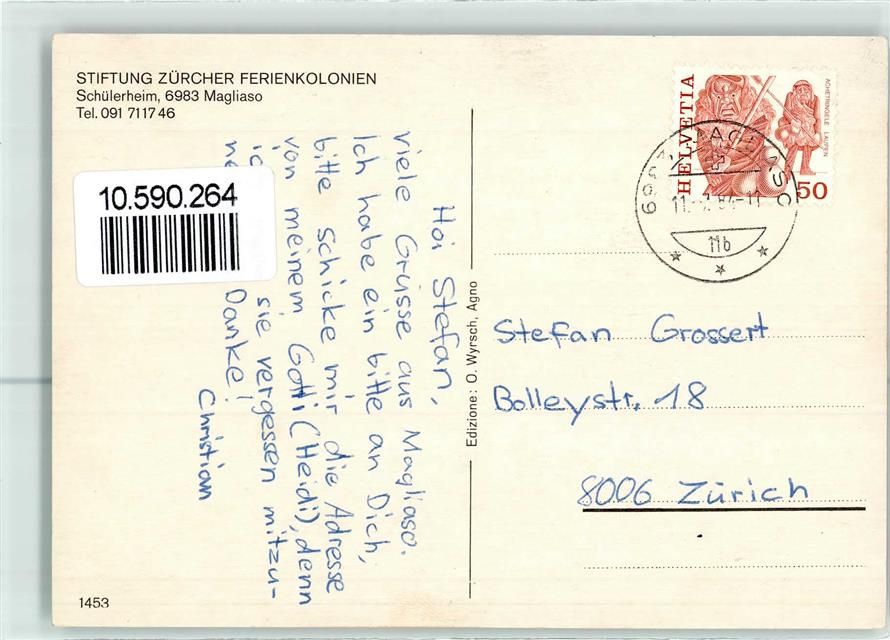 STIFTUNG ZÜRCHER FERIENKOLONIEN
Schülerheim, 6983 Magliaso
Tel. 091 711746
10.590.264
Hoi Stefan,
viele Grüsse aus Magliaso.
Ich habe ein bitte an Dich,
bitte schicke mir die Adresse
von meinem Gotti (Heidi), denn
sie vergessen mitzu-
Danke!
Christian
Edizione: O. Wyrsch, Agno
HELVETIA
ACHETRINGELE LAUPEN
50
11b
Stefan Grossert
Bolleystr. 18
8006 Zürich
1453